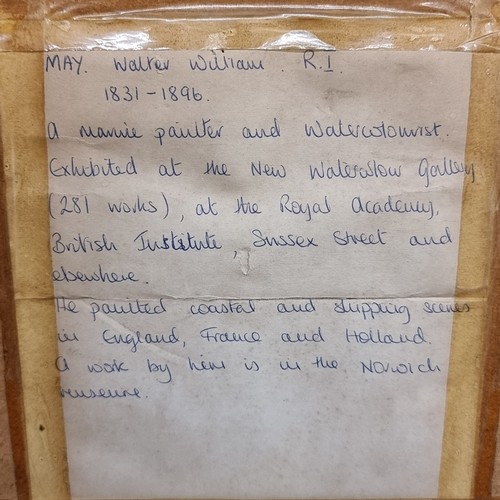 MAY. Walter William. R.I.
1831-1896.
A marine painter and Watercolourist.
Exhibited at the New Watercolour Gallery
(281 works), at the Royal Academy,
British Institute, Sussex Street and
elsewhere.
He painted coastal and shipping scenes
in England, France and Holland.
A work by him is in the Norwich
museum.